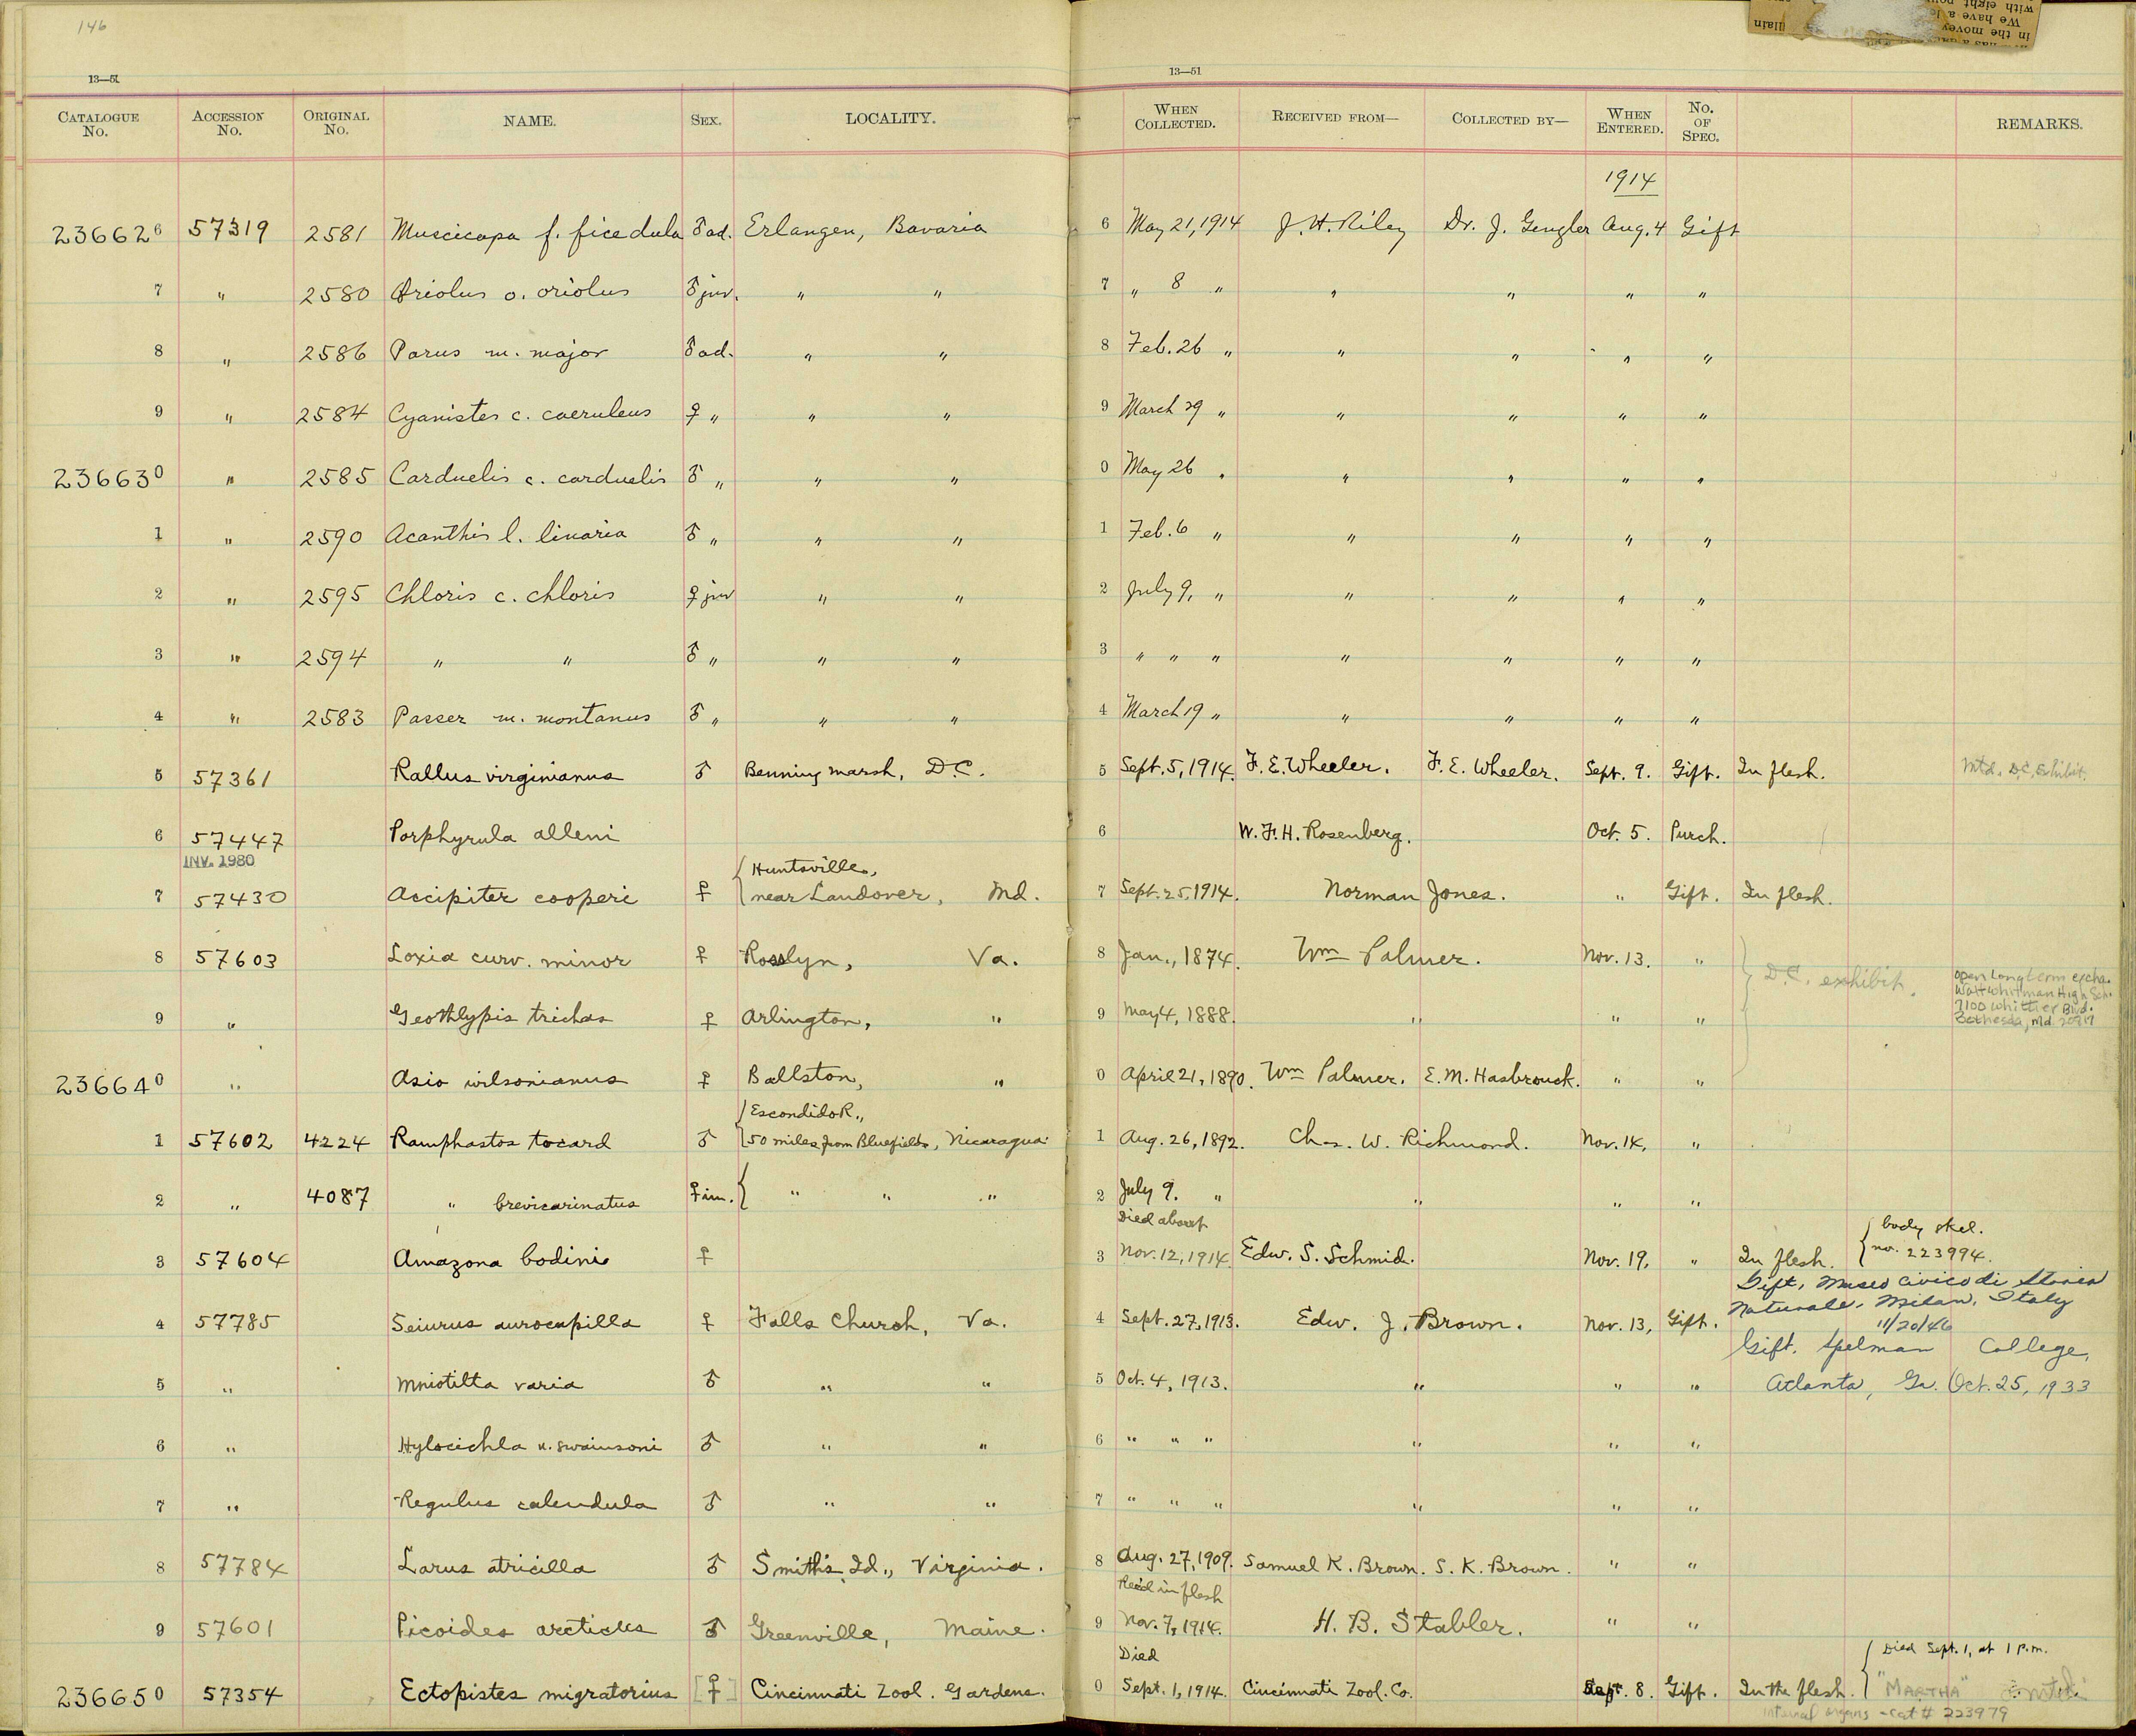 146
13—51
13—51
CATALOGUE No. ACCESSION No. ORIGINAL No. NAME. SEX. LOCALITY. WHEN COLLECTED. RECEIVED FROM— COLLECTED BY— WHEN ENTERED. No. OF SPEC. REMARKS.
1914
236626 57319 2581 Muscicapa f. ficedula ♂ ad. Erlangen, Bavaria 6 May 21, 1914 J. H. Riley Dr. J. Gengler Aug. 4 Gift
7 " 2580 Oriolus o. oriolus ♂ juv. " " 7 " 8 " " " " "
8 " 2586 Parus m. major ♂ ad. " " 8 Feb. 26 " " " " "
9 " 2584 Cyanistes c. caeruleus ♀ " " " 9 March 29 " " " " "
236630 " 2585 Carduelis c. carduelis ♂ " " " 0 May 26 " " " " "
1 " 2590 Acanthis l. linaria ♂ " " " 1 Feb. 6 " " " " "
2 " 2595 Chloris c. chloris ♀ juv " " 2 July 9, " " " " "
3 " 2594 " " ♂ " " " 3 " " " " " " "
4 " 2583 Passer m. montanus ♂ " " " 4 March 19 " " " " "
5 57361 Rallus virginianus ♂ Benning marsh, D.C. 5 Sept. 5, 1914. F. E. Wheeler. F. E. Wheeler. Sept. 9. Gift. In flesh. Mtd. D.C. Exhibit.
6 57447 Porphyrula alleni 6 W. F. H. Rosenberg. Oct. 5. Purch.
INV. 1980
Huntsville,
7 57430 Accipiter cooperi ♀ near Landover, Md. 7 Sept. 25, 1914. Norman Jones. " Gift. In flesh.
8 57603 Loxia curv. minor ♀ Rosslyn, Va. 8 Jan., 1874. Wm Palmer. Nov. 13. "
D.C. exhibit.
open long term excha.
Walt Whitman High Sch.
7100 Whittier Blvd.
Bethesda, Md. 20817
9 " Geothlypis trichas ♀ Arlington, " 9 May 4, 1888. " " "
236640 " Asio wilsonianus ♀ Ballston, " 0 April 21, 1890. Wm Palmer. E. M. Hasbrouck. " "
Escondido R.,
1 57602 4224 Ramphastos tocard ♂ 50 miles from Bluefields, Nicaragua. 1 Aug. 26, 1892. Chas. W. Richmond. Nov. 14, "
2 " 4087 " brevicarinatus ♀ im. " " " 2 July 9. " " " "
Died about body skel.
3 57604 Amazona bodini ♀ 3 Nov. 12, 1914 Edw. S. Schmid. Nov. 19, " In flesh. no. 223994.
Gift, Museo Civico di Storia
Naturale, Milan, Italy
11/20/46
4 57785 Seiurus aurocapilla ♀ Falls Church, Va. 4 Sept. 27, 1913. Edw. J. Brown. Nov. 13, Gift.
Gift. Spelman College,
5 " Mniotilta varia ♂ " " 5 Oct. 4, 1913. " " " Atlanta, Ga. Oct. 25, 1933
6 " Hylocichla u. swainsoni ♂ " " 6 " " " " " "
7 " Regulus calendula ♂ " " 7 " " " " " "
8 57784 Larus atricilla ♂ Smith's Id., Virginia. 8 Aug. 27, 1909. Samuel K. Brown. S. K. Brown. " "
Rec'd in flesh
9 57601 Picoides arcticus ♂ Greenville, Maine. 9 Nov. 7, 1914. H. B. Stabler. " "
Died Died Sept. 1, at 1 p.m.
236650 57354 Ectopistes migratorius [♀] Cincinnati Zool. Gardens. 0 Sept. 1, 1914. Cincinnati Zool. Co. Sept. 8. Gift. In the flesh. "MARTHA" mtd.
internal organs - cat # 223979